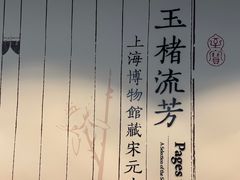 玉楮流芳
上海博物館藏宋元
Pages
A Selection of the S